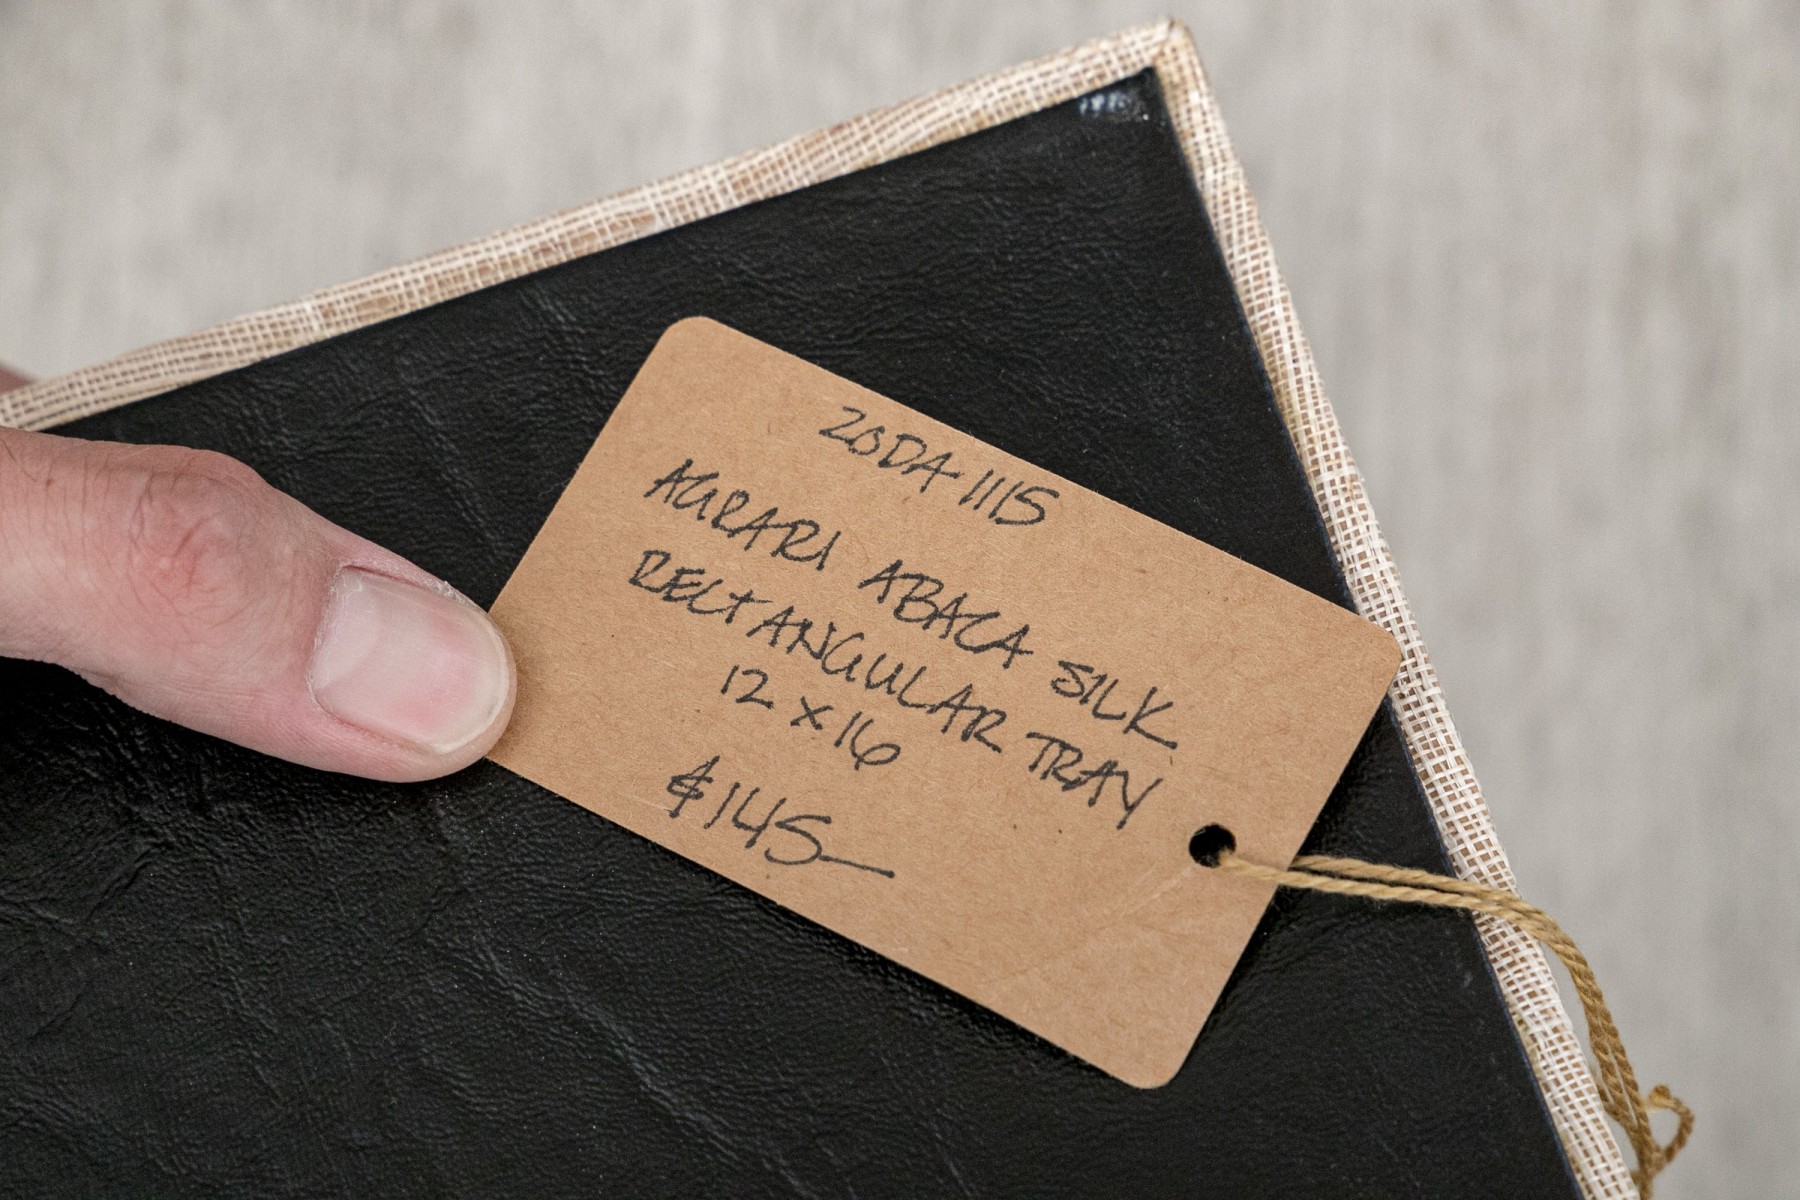 ZODA-1115
AGRARI ABACA SILK
RECTANGULAR TRAY
12 x 16
$145—